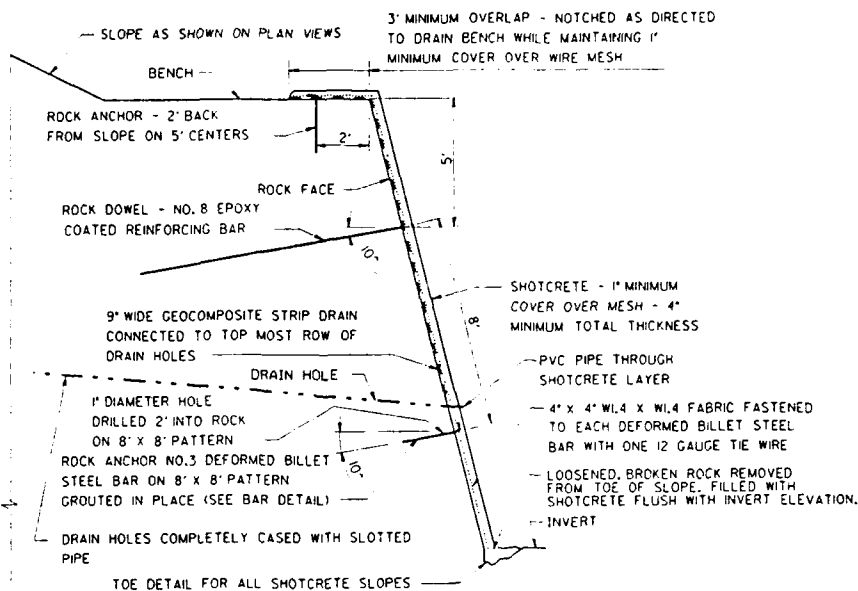 3' MINIMUM OVERLAP - NOTCHED AS DIRECTED
TO DRAIN BENCH WHILE MAINTAINING 1"
MINIMUM COVER OVER WIRE MESH
SLOPE AS SHOWN ON PLAN VIEWS
BENCH
ROCK ANCHOR - 2' BACK
FROM SLOPE ON 5' CENTERS
2'
5'
ROCK FACE
ROCK DOWEL - NO. 8 EPOXY
COATED REINFORCING BAR
10°
SHOTCRETE - 1" MINIMUM
COVER OVER MESH - 4"
MINIMUM TOTAL THICKNESS
8'
9" WIDE GEOCOMPOSITE STRIP DRAIN
CONNECTED TO TOP MOST ROW OF
DRAIN HOLES
PVC PIPE THROUGH
SHOTCRETE LAYER
DRAIN HOLE
1" DIAMETER HOLE
DRILLED 2' INTO ROCK
ON 8' X 8' PATTERN
4" X 4" W1.4 X W1.4 FABRIC FASTENED
TO EACH DEFORMED BILLET STEEL
BAR WITH ONE 12 GAUGE TIE WIRE
ROCK ANCHOR NO.3 DEFORMED BILLET
STEEL BAR ON 8' X 8' PATTERN
GROUTED IN PLACE (SEE BAR DETAIL)
10°
LOOSENED, BROKEN ROCK REMOVED
FROM TOE OF SLOPE, FILLED WITH
SHOTCRETE FLUSH WITH INVERT ELEVATION.
INVERT
DRAIN HOLES COMPLETELY CASED WITH SLOTTED
PIPE
TOE DETAIL FOR ALL SHOTCRETE SLOPES